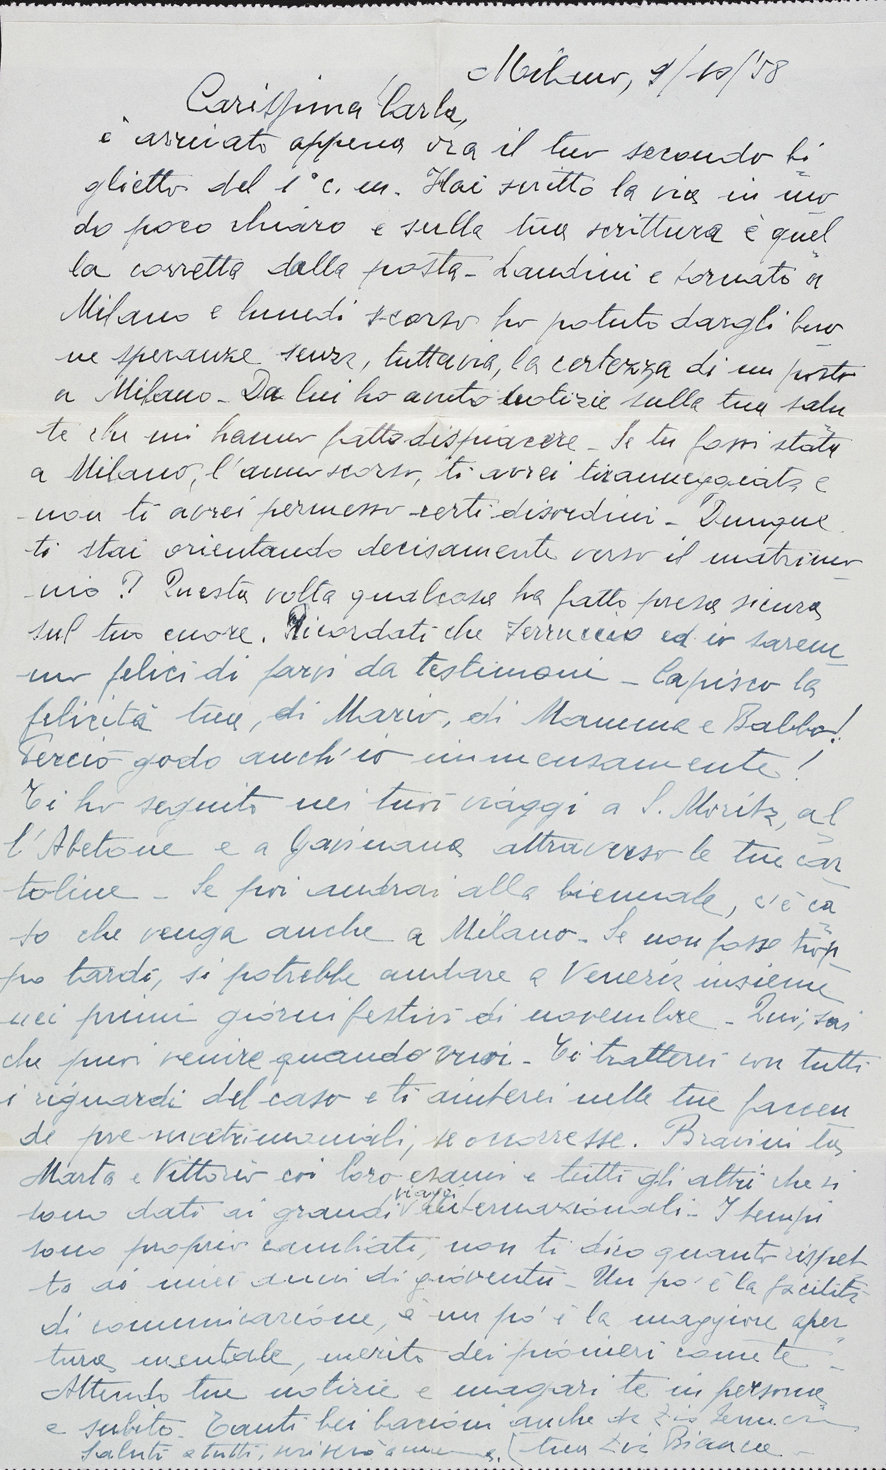 Milano, 9/10/'58
Carissima Carla,
è arrivato appena ora il tuo secondo bi
glietto del 1° c. m. Hai scritto la via in mo
do poco chiaro e sulla tua scrittura è quel
la corretta dalla posta - Landini è tornato a
Milano e lunedì scorso ho potuto dargli buo
ne speranze senza, tuttavia, la certezza di un posto
a Milano - Da lui ho avuto notizie sulla tua salu
te che mi hanno fatto dispiacere - Se tu fossi stata
a Milano, l'anno scorso, ti avrei tiranneggiata e
non ti avrei permesso certi disordini - Dunque
ti stai orientando decisamente verso il matrimo
nio? Questa volta qualcosa ha fatto presa sicura
sul tuo cuore. Ricordati che Ferruccio ed io sarem
mo felici di farvi da testimoni - Capisco la
felicità tua, di Mario, di Mamma e Babbo!
Perciò godo anch'io immensamente!
Ti ho seguito nei tuoi viaggi a S. Moritz, al
l'Abetone e a Gavinana attraverso le tue car
toline - Se poi andrai alla biennale, c'è ca
so che venga anche a Milano - Se non fosse trop
po tardi, si potrebbe andare a Venezia insieme
nei primi giorni festivi di novembre - Qui, sai
che puoi venire quando vuoi - Ti tratterei con tutti
i riguardi del caso e ti aiuterei nelle tue faccen
de pre-matrimoniali, se occorresse. Bravini tu,
Marta e Vittorio coi loro esami e tutti gli altri che si
sono dati ai grandi viaggi internazionali - I tempi
sono proprio cambiati, non ti dico quanto rispet
to ai miei anni di gioventù - Un po' è la facilità
di comunicazione, e un po' è la maggiore aper
tura mentale, merito dei pionieri come te -
Attendo tue notizie e magari te in persona
e subito - Tanti bei bacioni anche da Zio Ferruccio
Saluti a tutti, scriverò a tua Zia Bianca -